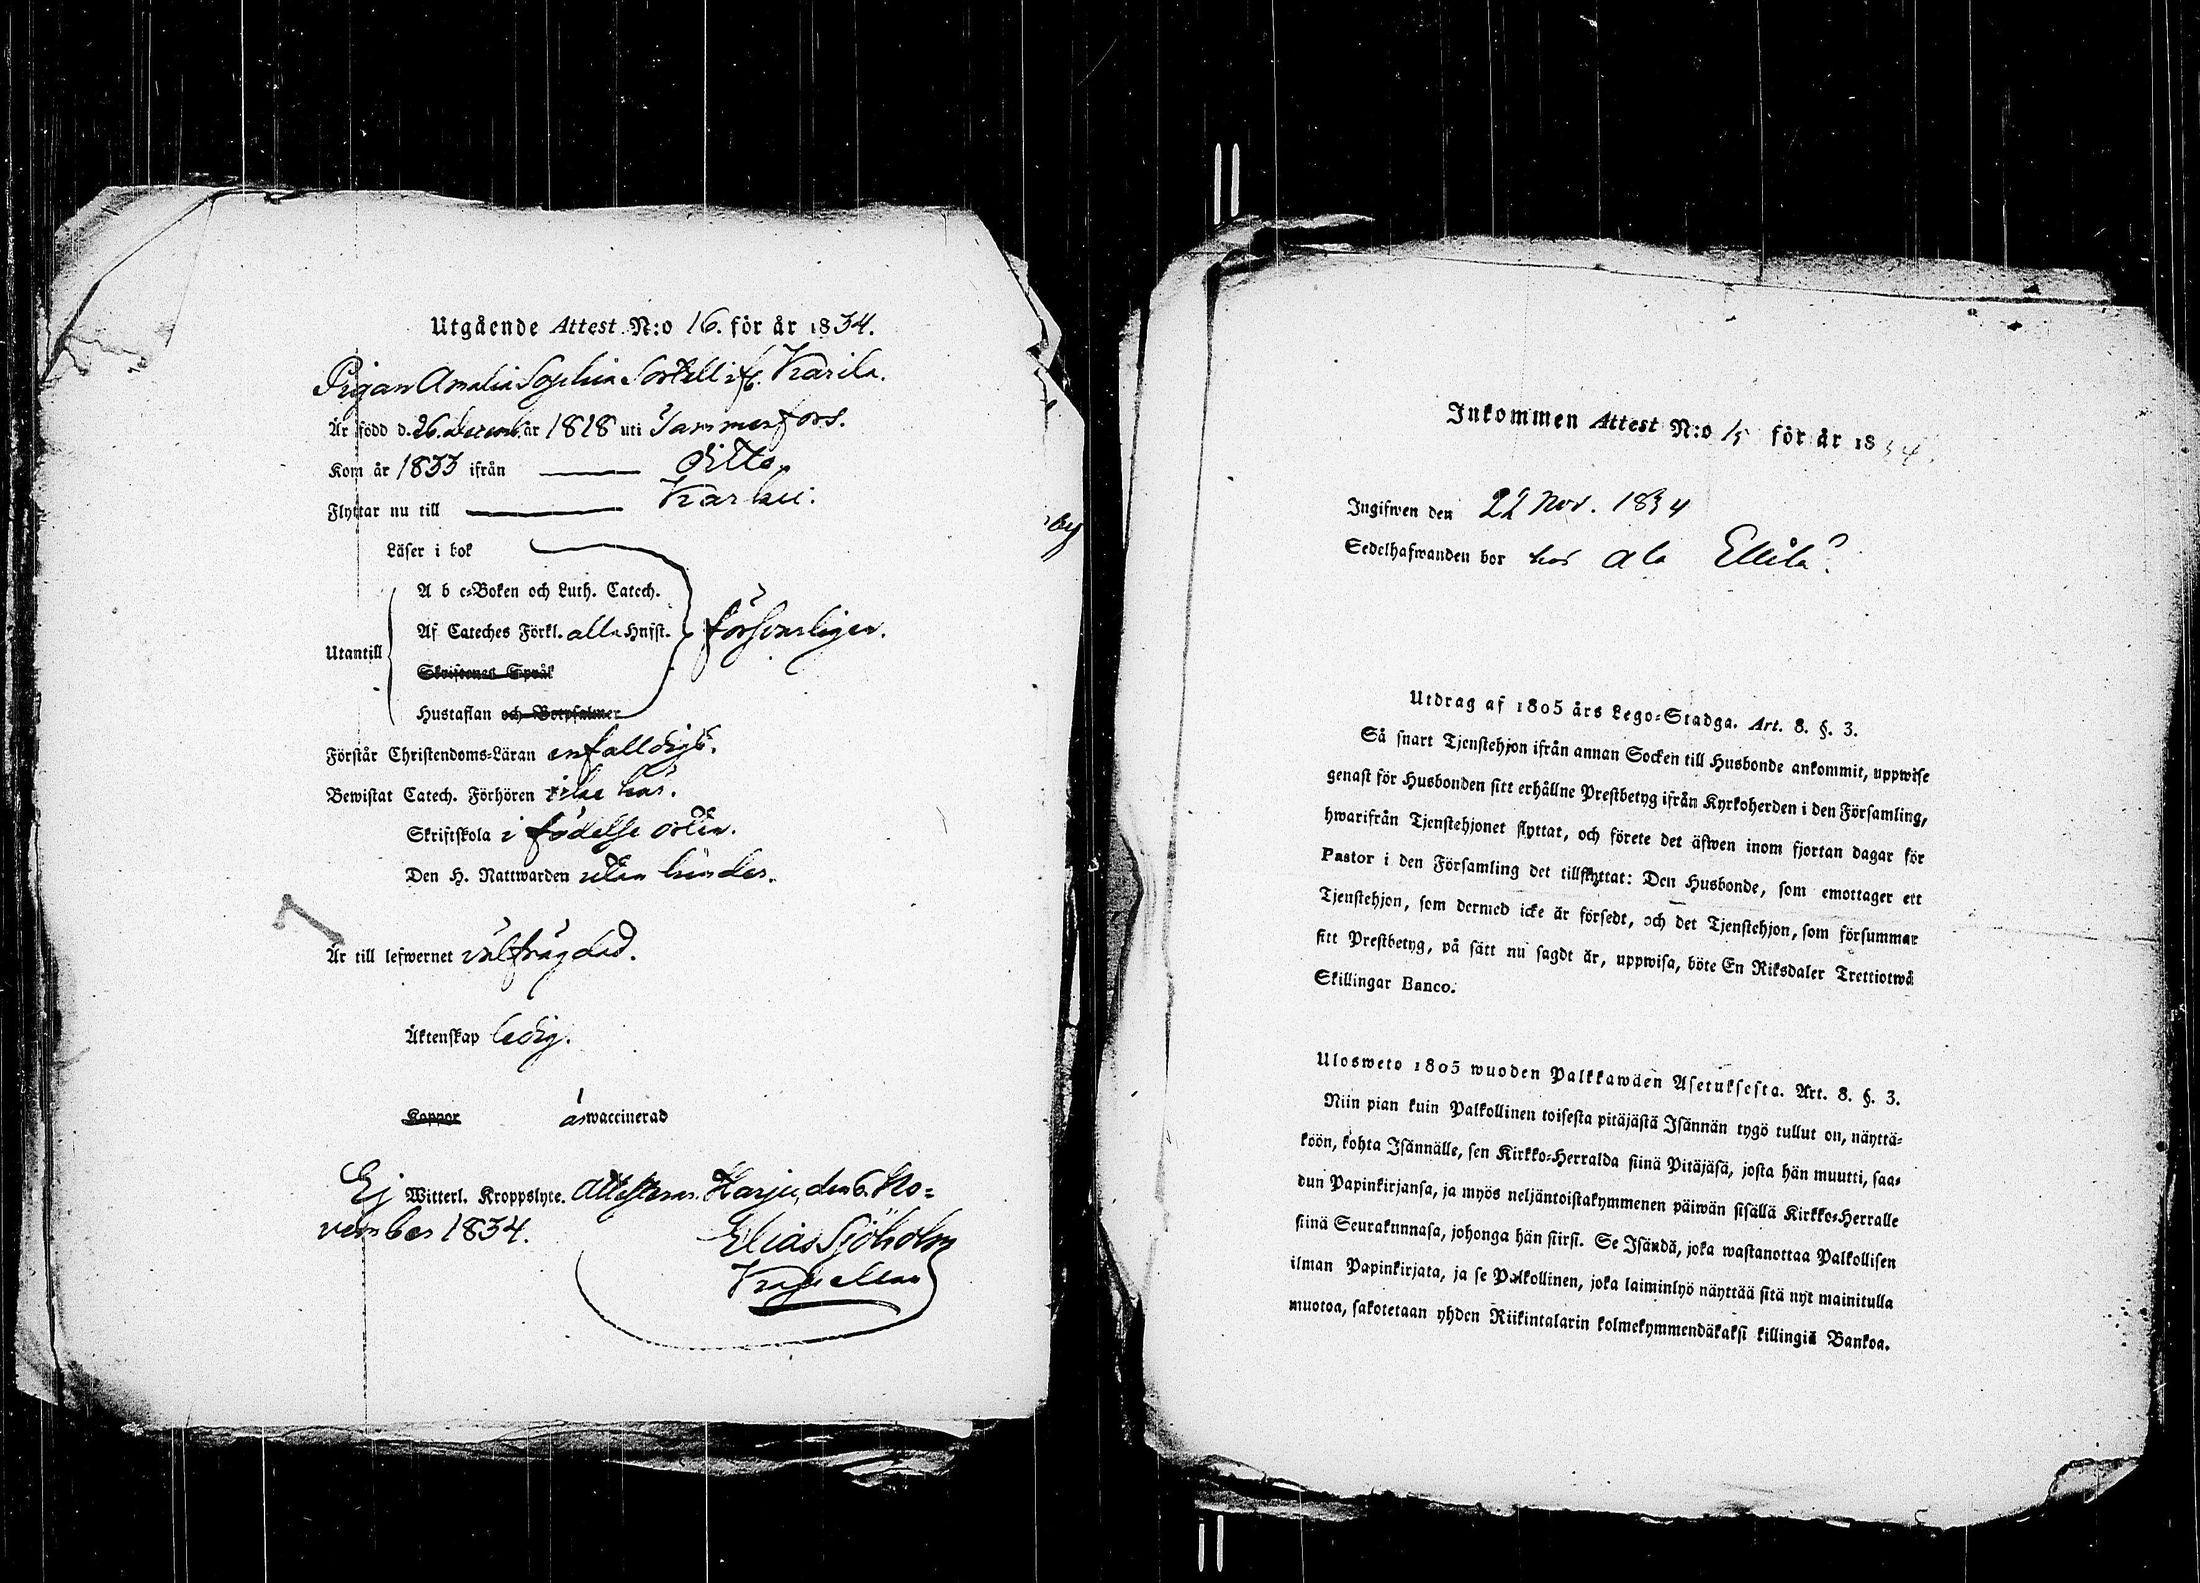 Utgående Attest N:o 16. för år 1834.
Pigan Amalia Sophia Sortell ifr. Karila.
Är född d. 26. Decemb. år 1818 uti Tammerfors.
Kom år 1833 ifrån ditto.
Flyttar nu till Karku.
Läser i bok
A b c-Boken och Luth. Catech.
Af Cateches Förkl. alla Hufst. försvarligen.
Utantill
Skriftenes Språk
Hustaflan och Botpsalmer
Förstår Christendoms-Läran enfalldigt.
Bewistat Catech. Förhören icke här.
Skriftskola i födelse orten.
Den H. Nattwarden utan hinder.
Är till lefwernet välfrägdad.
Äktenskap ledig.
Koppor är waccinerad
Ej Witterl. Kroppslyte. Attesterar. Harju, den 6. No-
vember 1834.
Elias Sjöholm
Kapellan
Inkommen Attest N:o 15 för år 1834.
Ingifwen den 22 Nov. 1834
Sedelhafwanden bor hos Ala Ellilä?
Utdrag af 1805 års Lego-Stadga. Art. 8. §. 3.
Så snart Tjenstehjon ifrån annan Socken till Husbonde ankommit, uppwise
genast för Husbonden sitt erhållne Prestbetyg ifrån Kyrkoherden i den Församling,
hwarifrån Tjenstehjonet flyttat, och förete det äfwen inom fjortan dagar för
Pastor i den Församling det tillflyttat: Den Husbonde, som emottager ett
Tjenstehjon, som dermed icke är försedt, och det Tjenstehjon, som försummar
sitt Prestbetyg, på sätt nu sagdt är, uppwisa, böte En Riksdaler Trettiotwå
Skillingar Banco.
Ulosweto 1805 wuoden Palkkawäen Asetuksesta. Art. 8. §. 3.
Niin pian kuin Palkollinen toisesta pitäjästä Isännän tygö tullut on, näyttä-
köön, kohta Isännälle, sen Kirkko-Herralda siinä Pitäjäsä, josta hän muutti, saa-
dun Papinkirjansa, ja myös neljäntoistakymmenen päiwän sisällä Kirkko-Herralle
siinä Seurakunnasa, johonga hän siirsi. Se Isändä, joka wastanottaa Palkollisen
ilman Papinkirjata, ja se Palkollinen, joka laiminlyö näyttää sitä nyt mainitulla
muotoa, sakotetaan yhden Riikintalarin kolmekymmendäkaksi killingiä Bankoa.